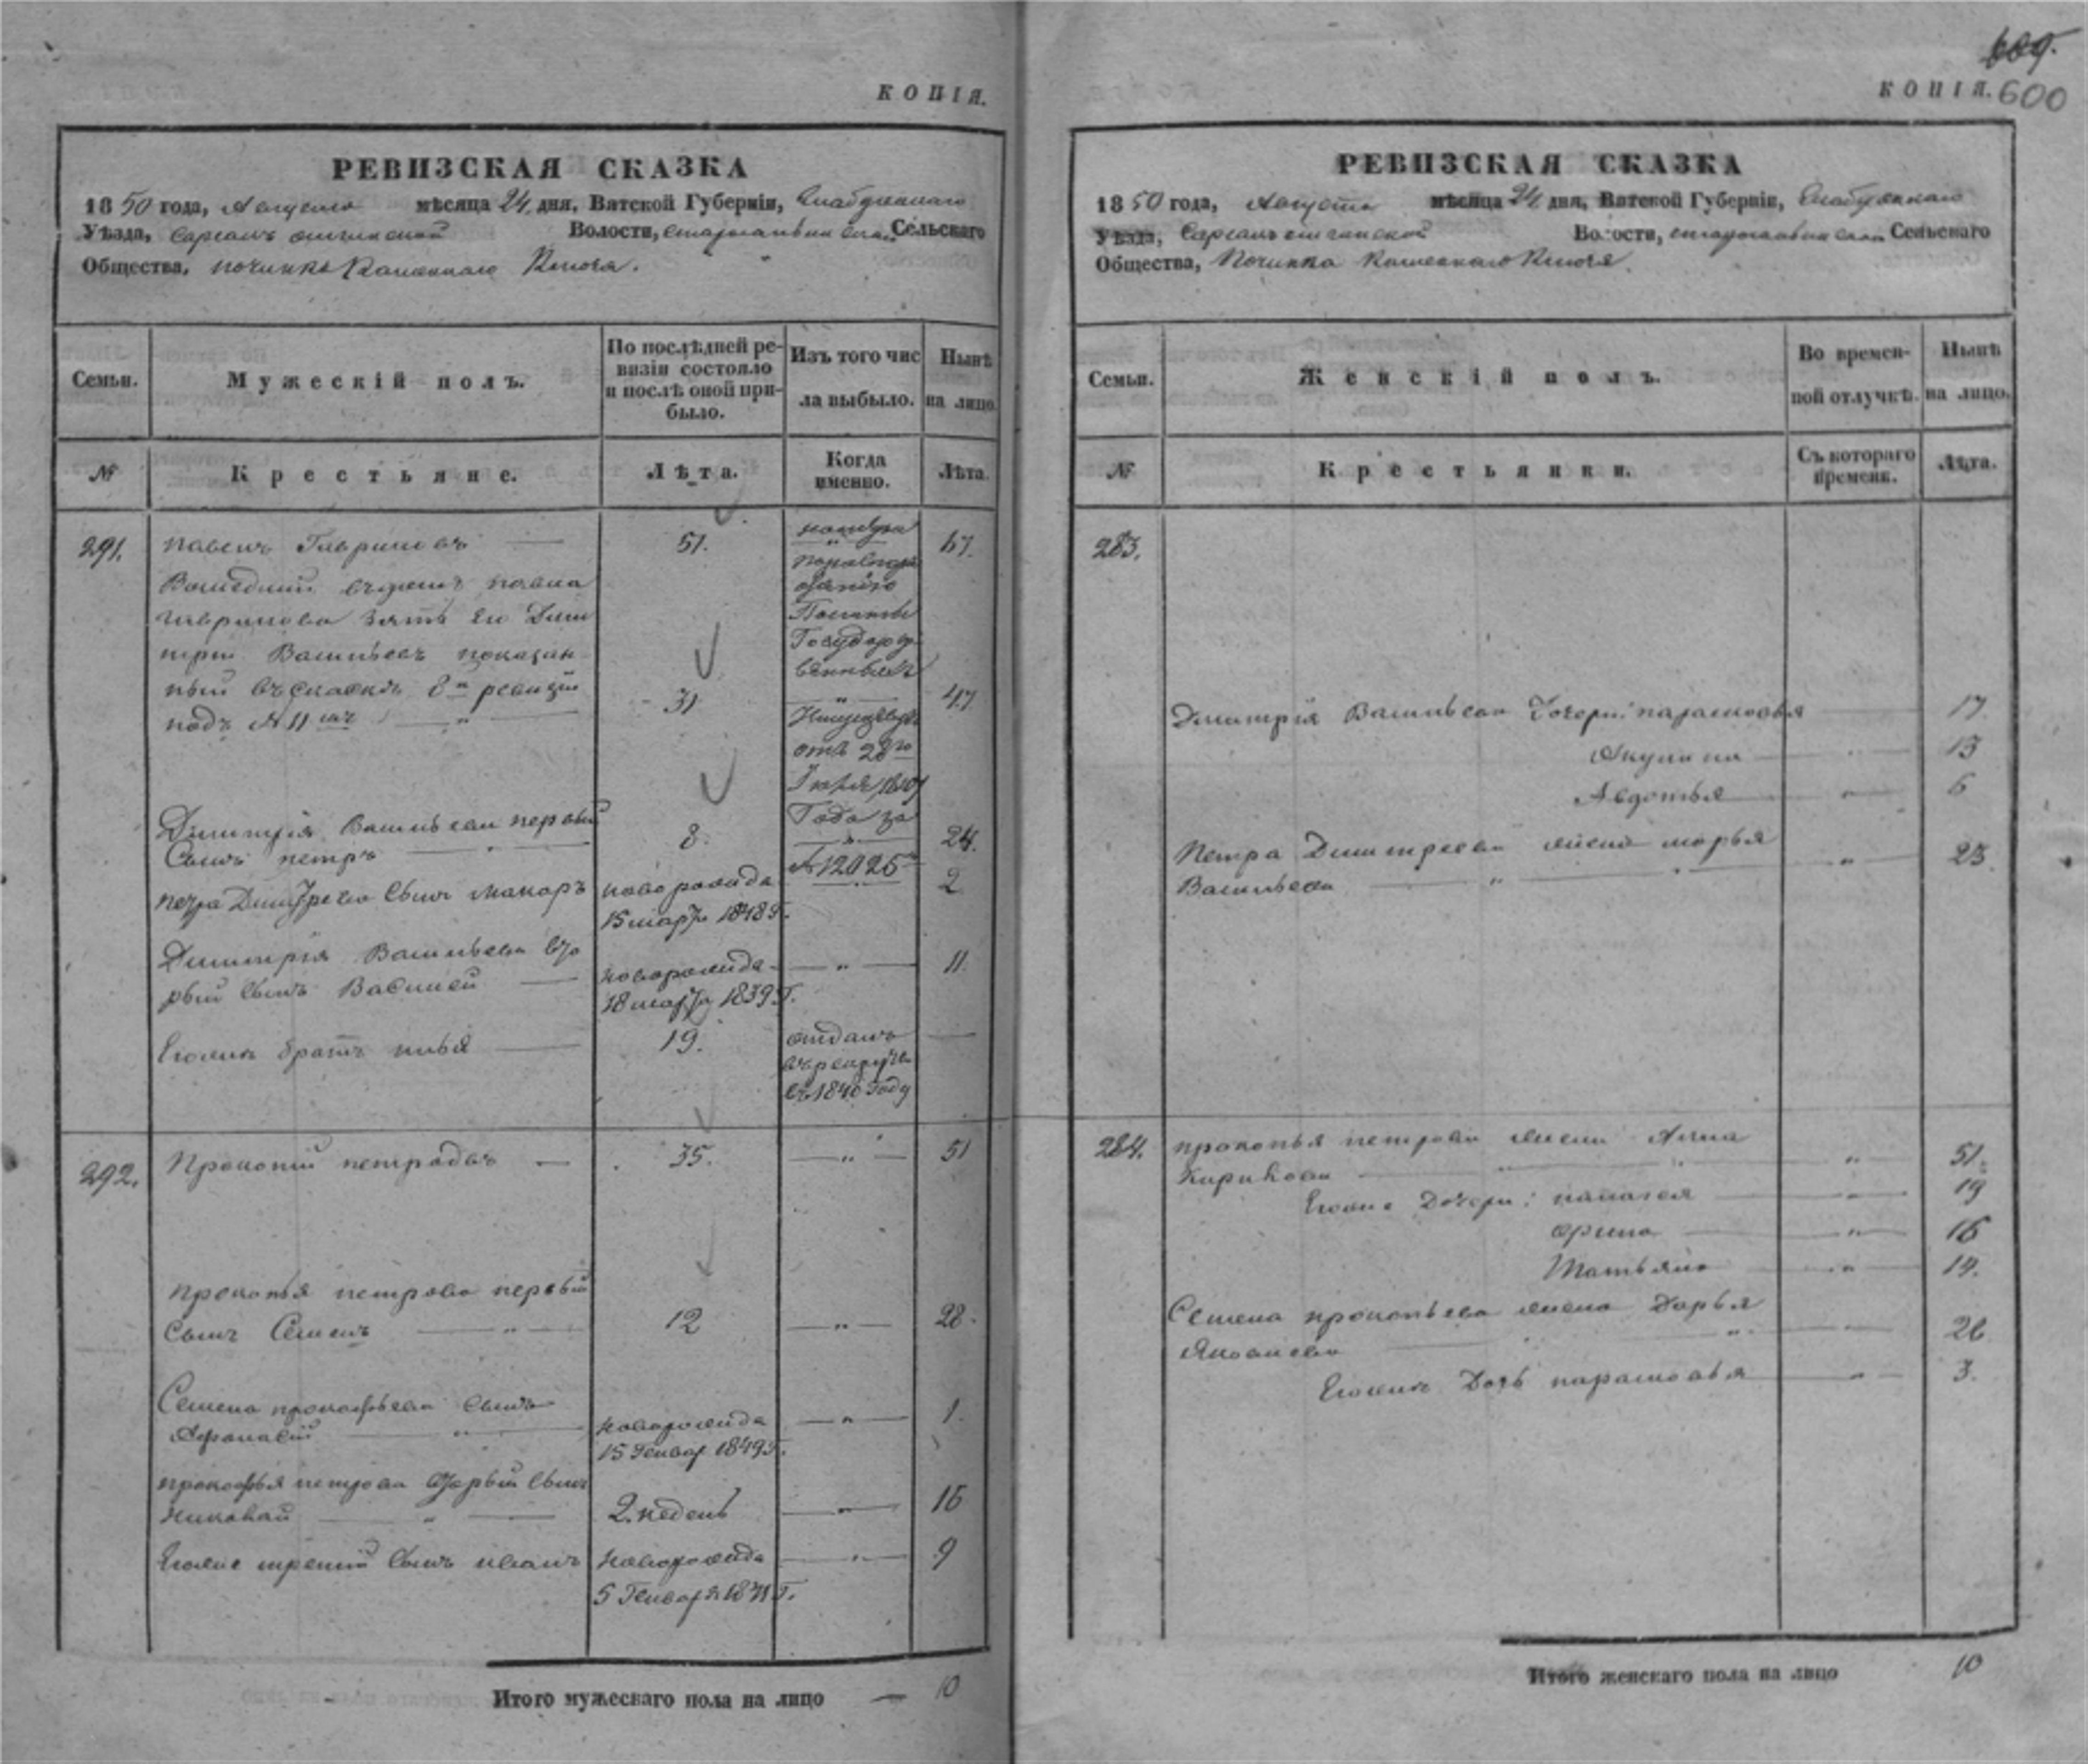 КОПІЯ.
РЕВИЗСКАЯ СКАЗКА
1850 года, Августа мѣсяца 24 дня, Вятской Губерніи, Елабужскаго
Уѣзда, Волости, Сельскаго
Общества, починка Каменнаго Ключа.
Семьи. Мужескій полъ. По послѣдней ревизіи состояло и послѣ оной прибыло. Изъ того числа выбыло. Нынѣ на лицо.
№ Крестьяне. Лѣта. Когда именно. Лѣта.
291. Павелъ Гавриловъ — 51. 67.
Вошедшій въ домъ Павла
Гаврилова зять его Дми
трій Васильевъ показан-
ный въ сказкѣ 8й ревизіи
подъ № 11мъ — " — 31 — " — 47
отъ 28го
Года за
№ 12025
Дмитрія Васильева первый
Сынъ петръ — " — 8. — " — 24.
петра Дмитреева Сынъ Макаръ новорожде 2
15 марта 1848 Г.
Дмитрія Васильева вто
рый Сынъ Василей — новорожде — " — 11.
18 марта 1839 Г.
Егожъ братъ илья — 19. отданъ —
въ рекруты
въ 1840 Году
292. Прокопій петровъ — 35. — " — 51
Прокопья петрова первый
Сынъ Семенъ — " — 12 — " — 28.
Семена прокопьева Сынъ
Афонасій — " — новорожде — " — 1.
15 Генвар 1849 Г.
прокопья петрова вторый Сынъ
Николай — " — 2. недель — " — 16
Егоже третій Сынъ иванъ новорожде — " — 9
5 Генваря 1841 Г.
Итого мужескаго пола на лицо — 10
609.
КОПІЯ. 600
РЕВИЗСКАЯ СКАЗКА
1850 года, Августа мѣсяца 24 дня, Вятской Губерніи, Елабужскаго
Уѣзда, Волости, Сельскаго
Общества, Починка Каменнаго Ключа.
Семьи. Женскій полъ. Во временной отлучкѣ. Нынѣ на лицо.
№ Крестьянки. Съ котораго времени. Лѣта.
283.
Дмитрія Васильева Дочери: парасковья — 17.
Акулина — " — 13
Авдотья — " — 6
Петра Дмитреева жена марья
Васильева — " — " — 23.
284. прокопья петрова жена Анна
Кирилова — " — " — 51.
Егоже Дочери: палагея — " — 19
орина — " — 16
Татьяна — " — 14.
Семена прокопьева жена Дарья
Яковлева — " — " — 26
Егожъ Дочь парасковья — " — 3.
Итого женскаго пола на лицо 10